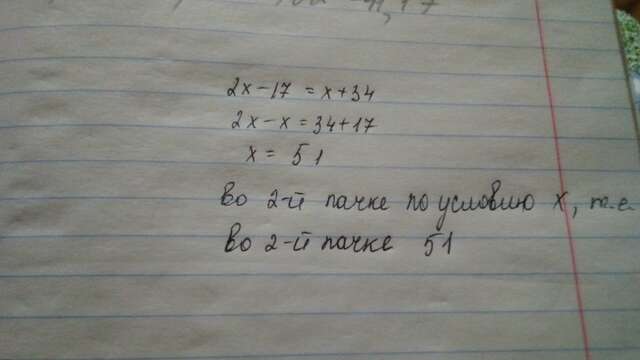 2x-17 = x+34
2x-x = 34+17
x = 51
Во 2-й пачке по условию x, т.е.
Во 2-й пачке 51